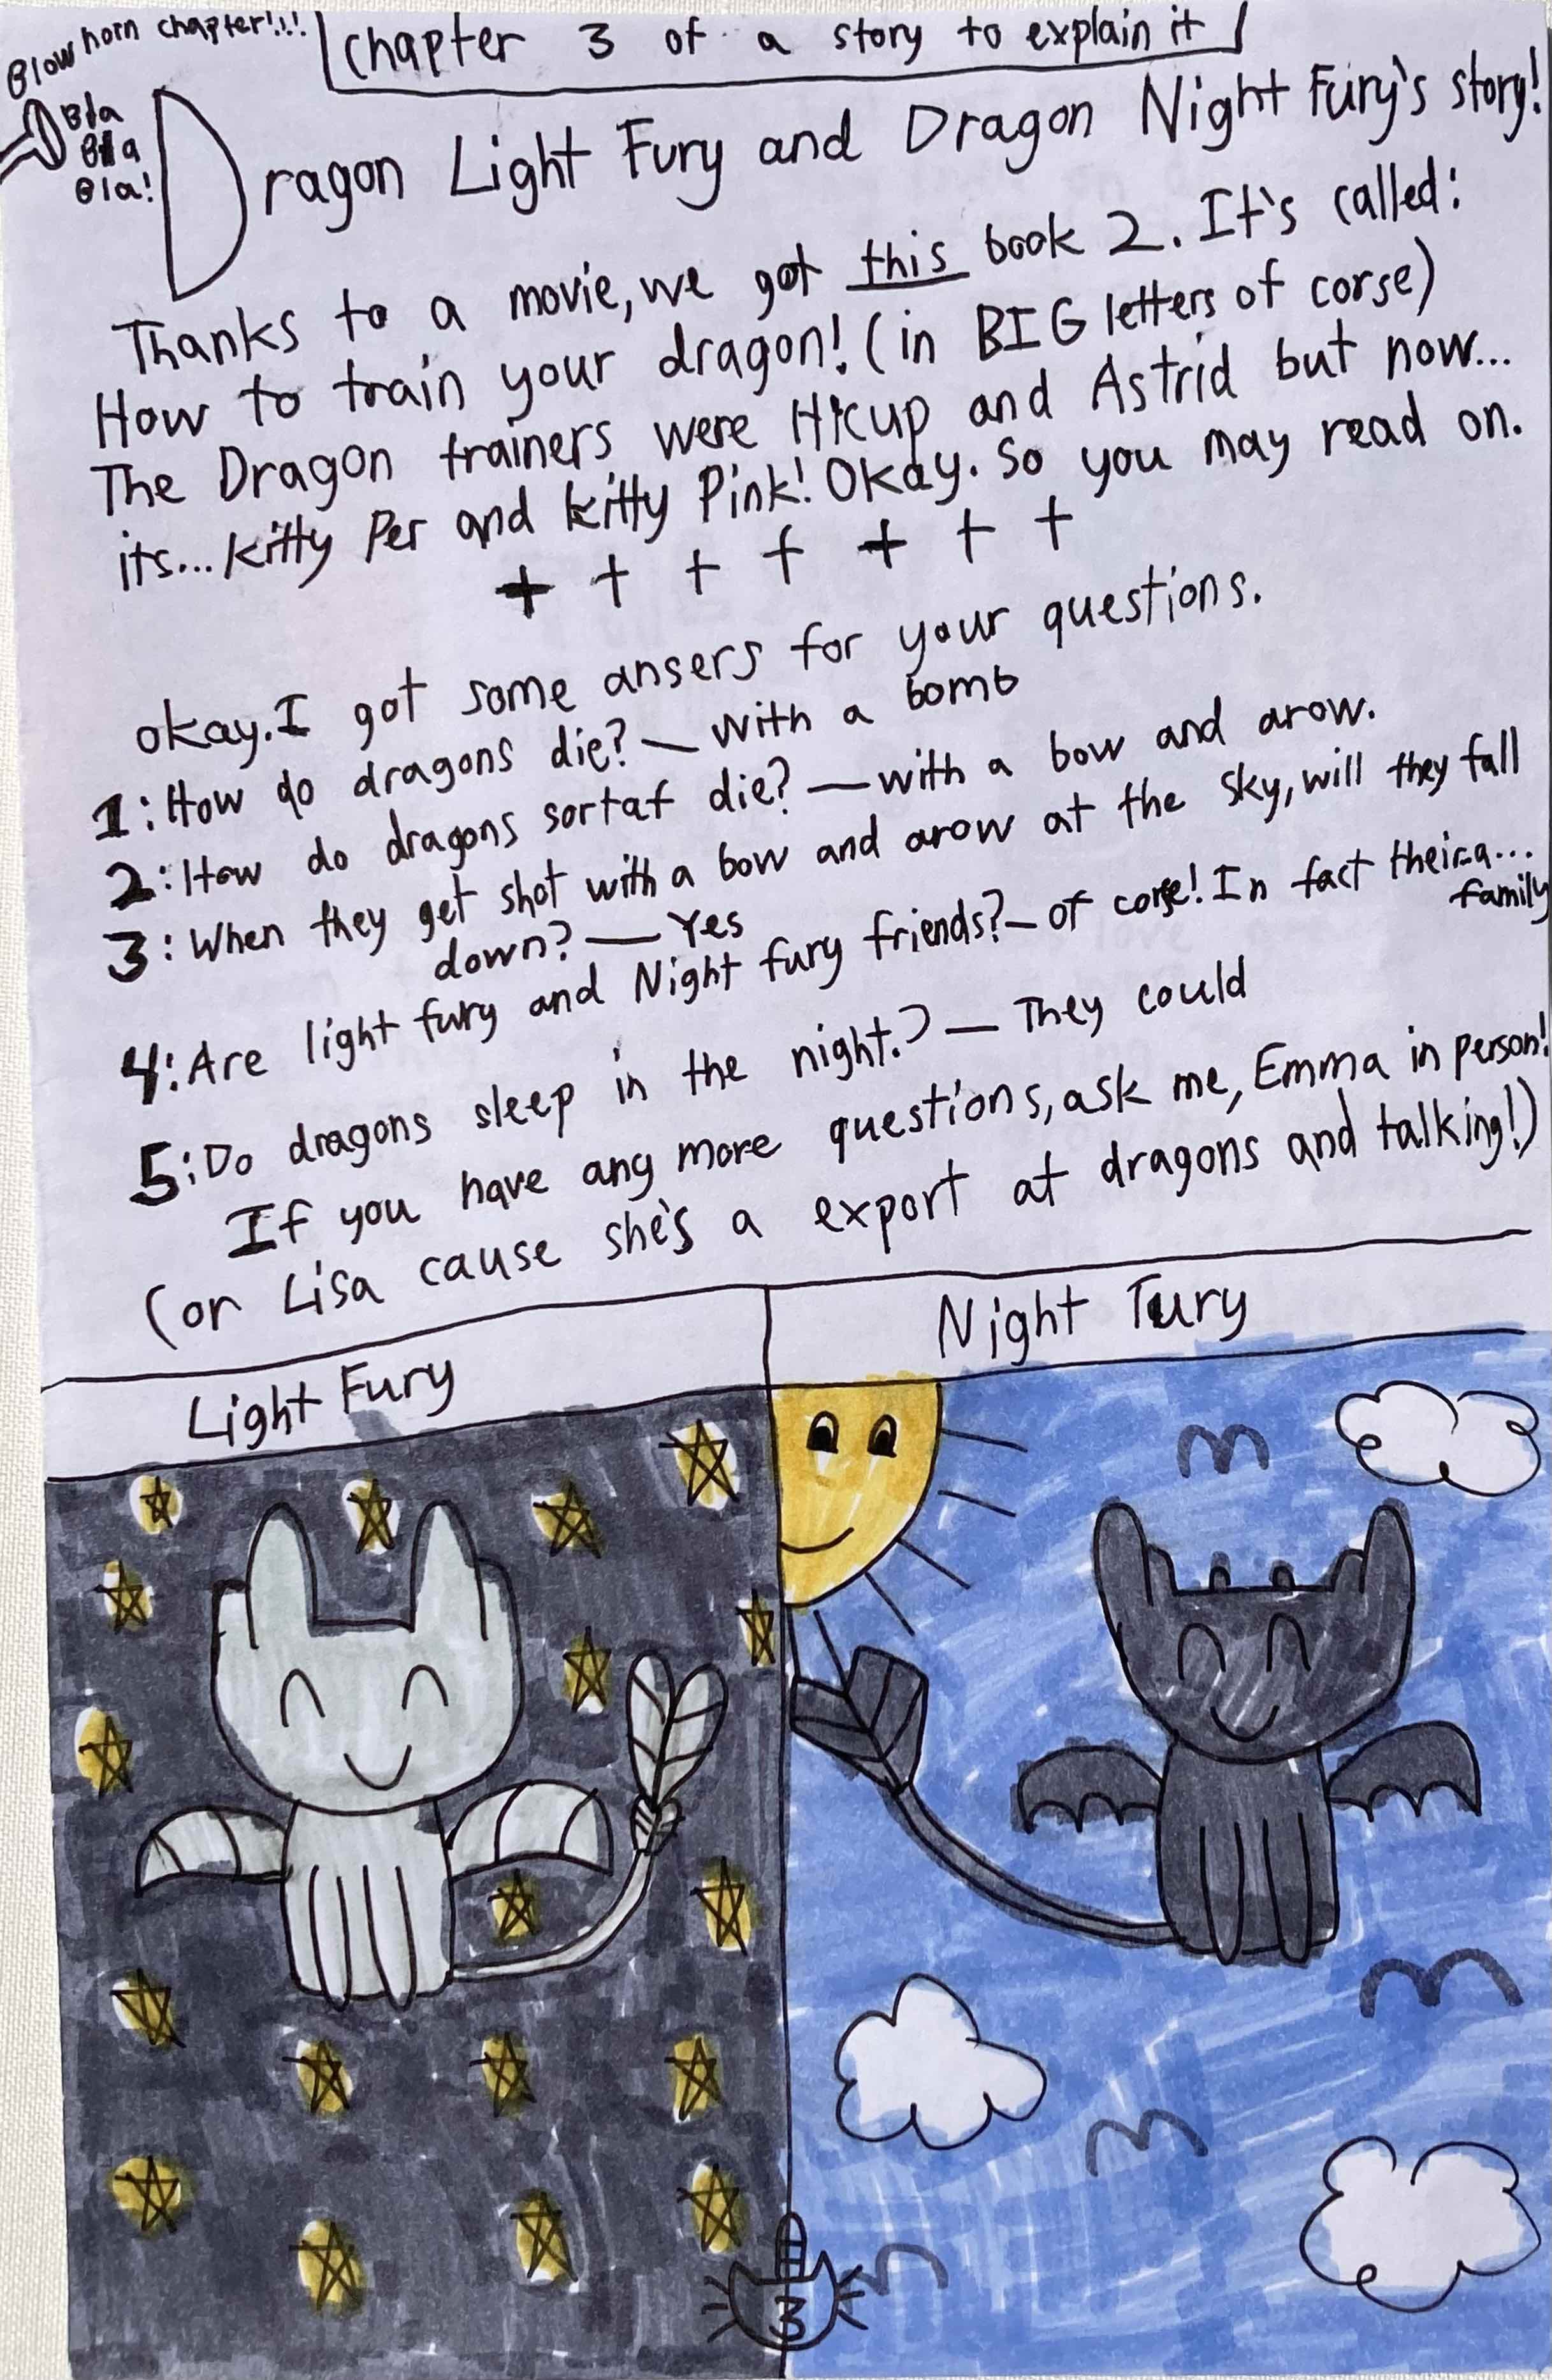 Blow horn chapter!!!
chapter 3 of a story to explain it
Bla
Bla
Bla!
Dragon Light Fury and Dragon Night Fury's story!
Thanks to a movie, we got this book 2. It's called:
How to train your dragon! (in BIG letters of corse)
The Dragon trainers were Hicup and Astrid but now...
its... kitty Per and kitty Pink! Okay. So you may read on.
+ + + + + + +
okay. I got some ansers for your questions.
1: How do dragons die? — with a bomb
2: How do dragons sortaf die? — with a bow and arow.
3: When they get shot with a bow and arow at the sky, will they fall
down? — Yes
4: Are light fury and Night fury friends? — of corse! In fact their a...
family
5: Do dragons sleep in the night? — They could
If you have any more questions, ask me, Emma in person!
(or Lisa cause she's a export at dragons and talking!)
Light Fury
Night Tury
3